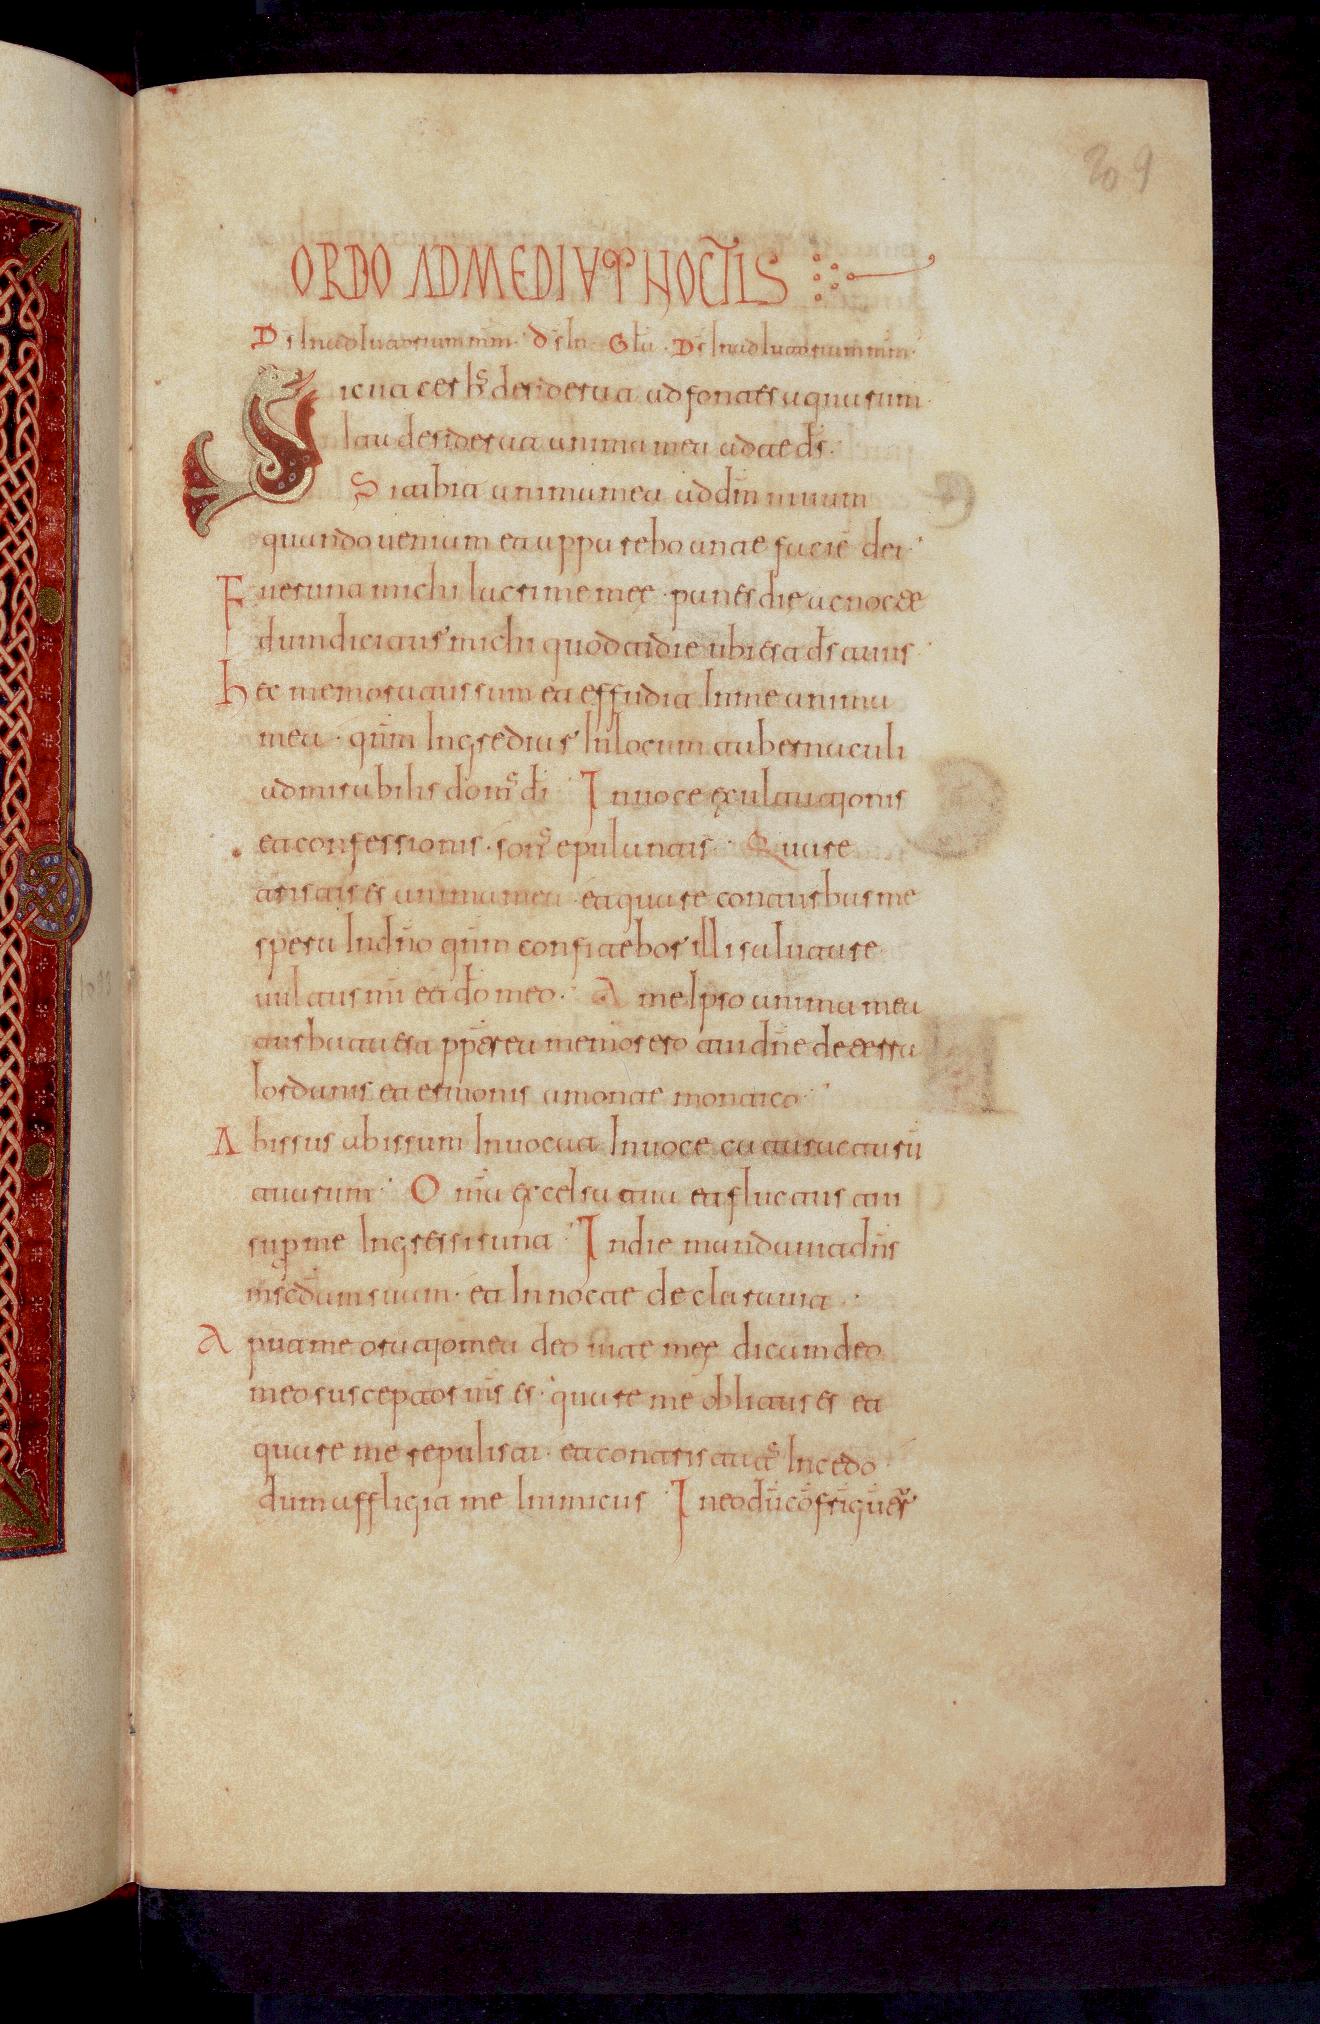 209
ORDO AD MEDIUM NOCTIS
Ds In adiutorium mm. ds In. Gla. Ds In adiutorium mm.
Sicut ceruus desiderat ad fontes aquarum
Ita desiderat anima mea ad te ds.
Sitibit anima mea ad dm uiuum
quando ueniam et apparebo ante facie dei
Fuerunt michi lacrime mee panes die ac nocte
dum dicitur michi quotidie ubi est ds tuus
hec memoratus sum et effudit In me anima
mea. qnm Ingrediar In locum tabernaculi
admirabilis domus di In uoce exultationis
et confessionis. sonus epulantis. Quare
tristis es anima mea et quare conturbas me
spera In dno qnm confitebor illi salutare
uultus mi et ds meo. A me Ipso anima mea
turbata est ppterea memor ero tui dne de terra
Iordanis et ermonis a monte modico
Abissus abissum Inuocat In uoce cataractaru
tuarum. Omia excelsa tua et fluctus tui
super me Ingressi sunt In die mandauit dns
mscdam suam. et In nocte declarauit
Aput me oratio mea deo uite mee dicam deo
meo susceptor ms es. quare me oblitus es et
quare me repulisti. et contristatus Incedo
dum affligit me Inimicus In eo du cofriguer